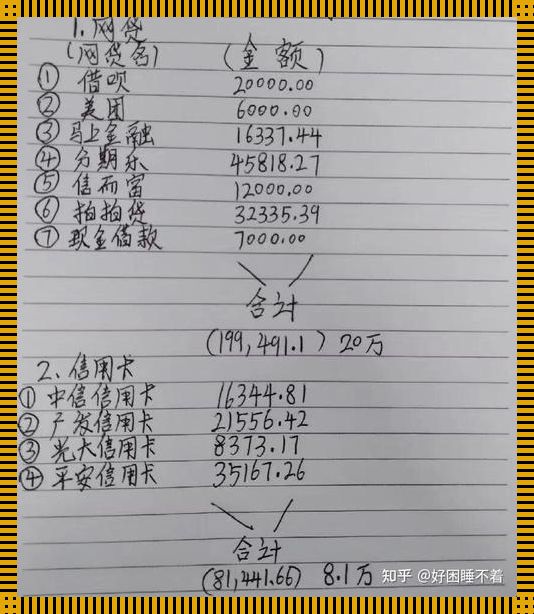 1.网贷
(网贷名) (金额)
① 借呗 20000.00
② 美团 6000.00
③ 马上金融 16337.44
④ 分期乐 45818.27
⑤ 信而富 12000.00
⑥ 拍拍贷 32335.39
⑦ 现金借款 7000.00
合计
(199,491.1) 20万
2、信用卡
① 中信信用卡 16344.81
② 广发信用卡 21556.42
③ 光大信用卡 8373.17
④ 平安信用卡 35167.26
合计
(81,441.66) 8.1万
知乎 @好困睡不着